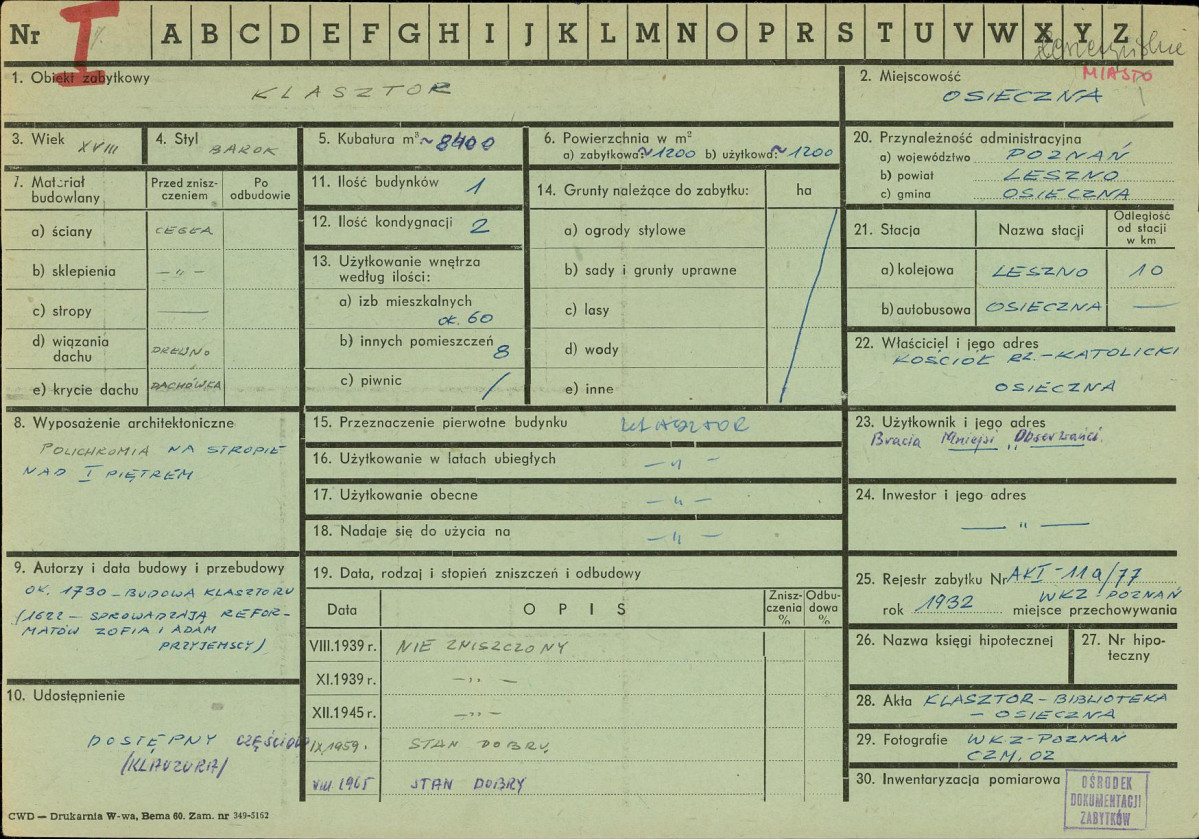 Nr I A B C D E F G H I J K L M N O P R S T U V W X Y Z
MIASTO
1. Obiekt zabytkowy
KLASZTOR
2. Miejscowość
OSIECZNA
3. Wiek XVIII
4. Styl BAROK
5. Kubatura m³ ~8400
6. Powierzchnia w m²
a) zabytkowa: ~1200 b) użytkowa: ~1200
20. Przynależność administracyjna
a) województwo POZNAŃ
b) powiat LESZNO
c) gmina OSIECZNA
7. Materiał budowlany
Przed zniszczeniem
Po odbudowie
a) ściany CEGŁA
b) sklepienia — " —
c) stropy —
d) wiązania dachu DREWNO
e) krycie dachu DACHÓWKA
11. Ilość budynków 1
12. Ilość kondygnacji 2
13. Użytkowanie wnętrza
według ilości:
a) izb mieszkalnych
ok. 60
b) innych pomieszczeń 8
c) piwnic /
14. Grunty należące do zabytku: ha
a) ogrody stylowe
b) sady i grunty uprawne
c) lasy
d) wody
e) inne
21. Stacja
Nazwa stacji
Odległość od stacji w km
a) kolejowa LESZNO 10
b) autobusowa OSIECZNA —
22. Właściciel i jego adres
KOŚCIÓŁ RZ.-KATOLICKI
OSIECZNA
8. Wyposażenie architektoniczne
POLICHROMIA NA STROPIE
NAD I PIĘTREM
15. Przeznaczenie pierwotne budynku KLASZTOR
16. Użytkowanie w latach ubiegłych — " —
17. Użytkowanie obecne — " —
18. Nadaje się do użycia na — " —
23. Użytkownik i jego adres
Bracia Mniejsi „Obserwanci"
24. Inwestor i jego adres
— " —
9. Autorzy i data budowy i przebudowy
OK. 1730 – BUDOWA KLASZTORU
(1622 – SPROWADZAJĄ REFOR-
MATÓW ZOFIA I ADAM
PRZYJEMSCY)
10. Udostępnienie
DOSTĘPNY CZĘŚCIOWO
/KLAUZURA/
19. Data, rodzaj i stopień zniszczeń i odbudowy
Data
OPIS
Zniszczenia %
Odbudowa %
VIII.1939 r. NIE ZNISZCZONY
XI.1939 r. — " —
XII.1945 r. — " —
IX.1959. STAN DOBRY
VIII.1965 STAN DOBRY
25. Rejestr zabytku Nr AKI-11a/77
rok 1932 WKZ-POZNAŃ
miejsce przechowywania
26. Nazwa księgi hipotecznej
27. Nr hipoteczny
28. Akta KLASZTOR – BIBLIOTEKA
– OSIECZNA
29. Fotografie WKZ-POZNAŃ
CZM, OZ
30. Inwentaryzacja pomiarowa
OŚRODEK
DOKUMENTACJI
ZABYTKÓW
CWD — Drukarnia W-wa, Bema 60. Zam. nr 349-5162